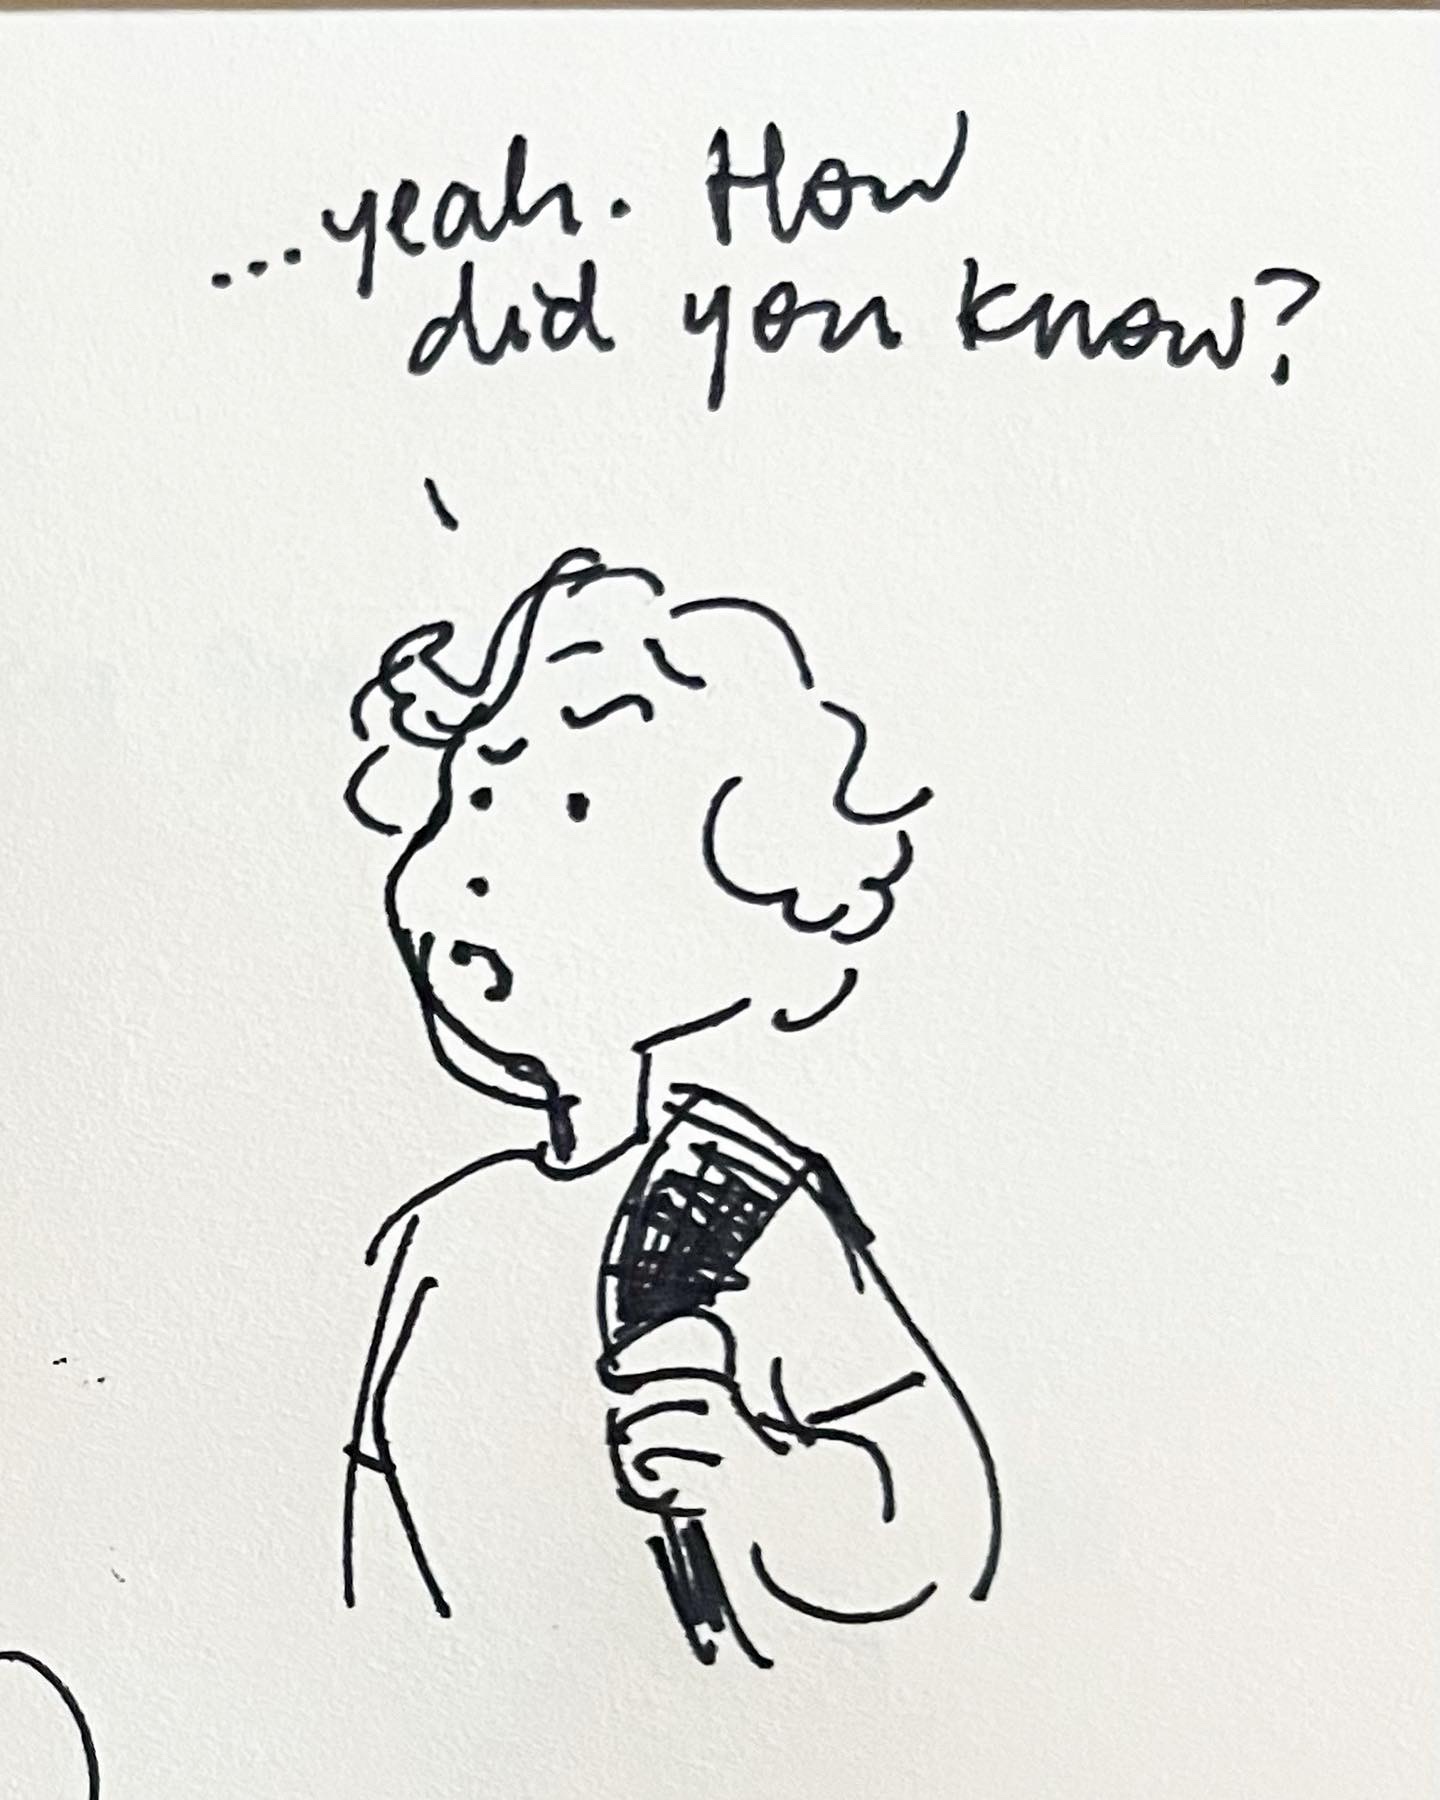 ...yeah. How
did you know?